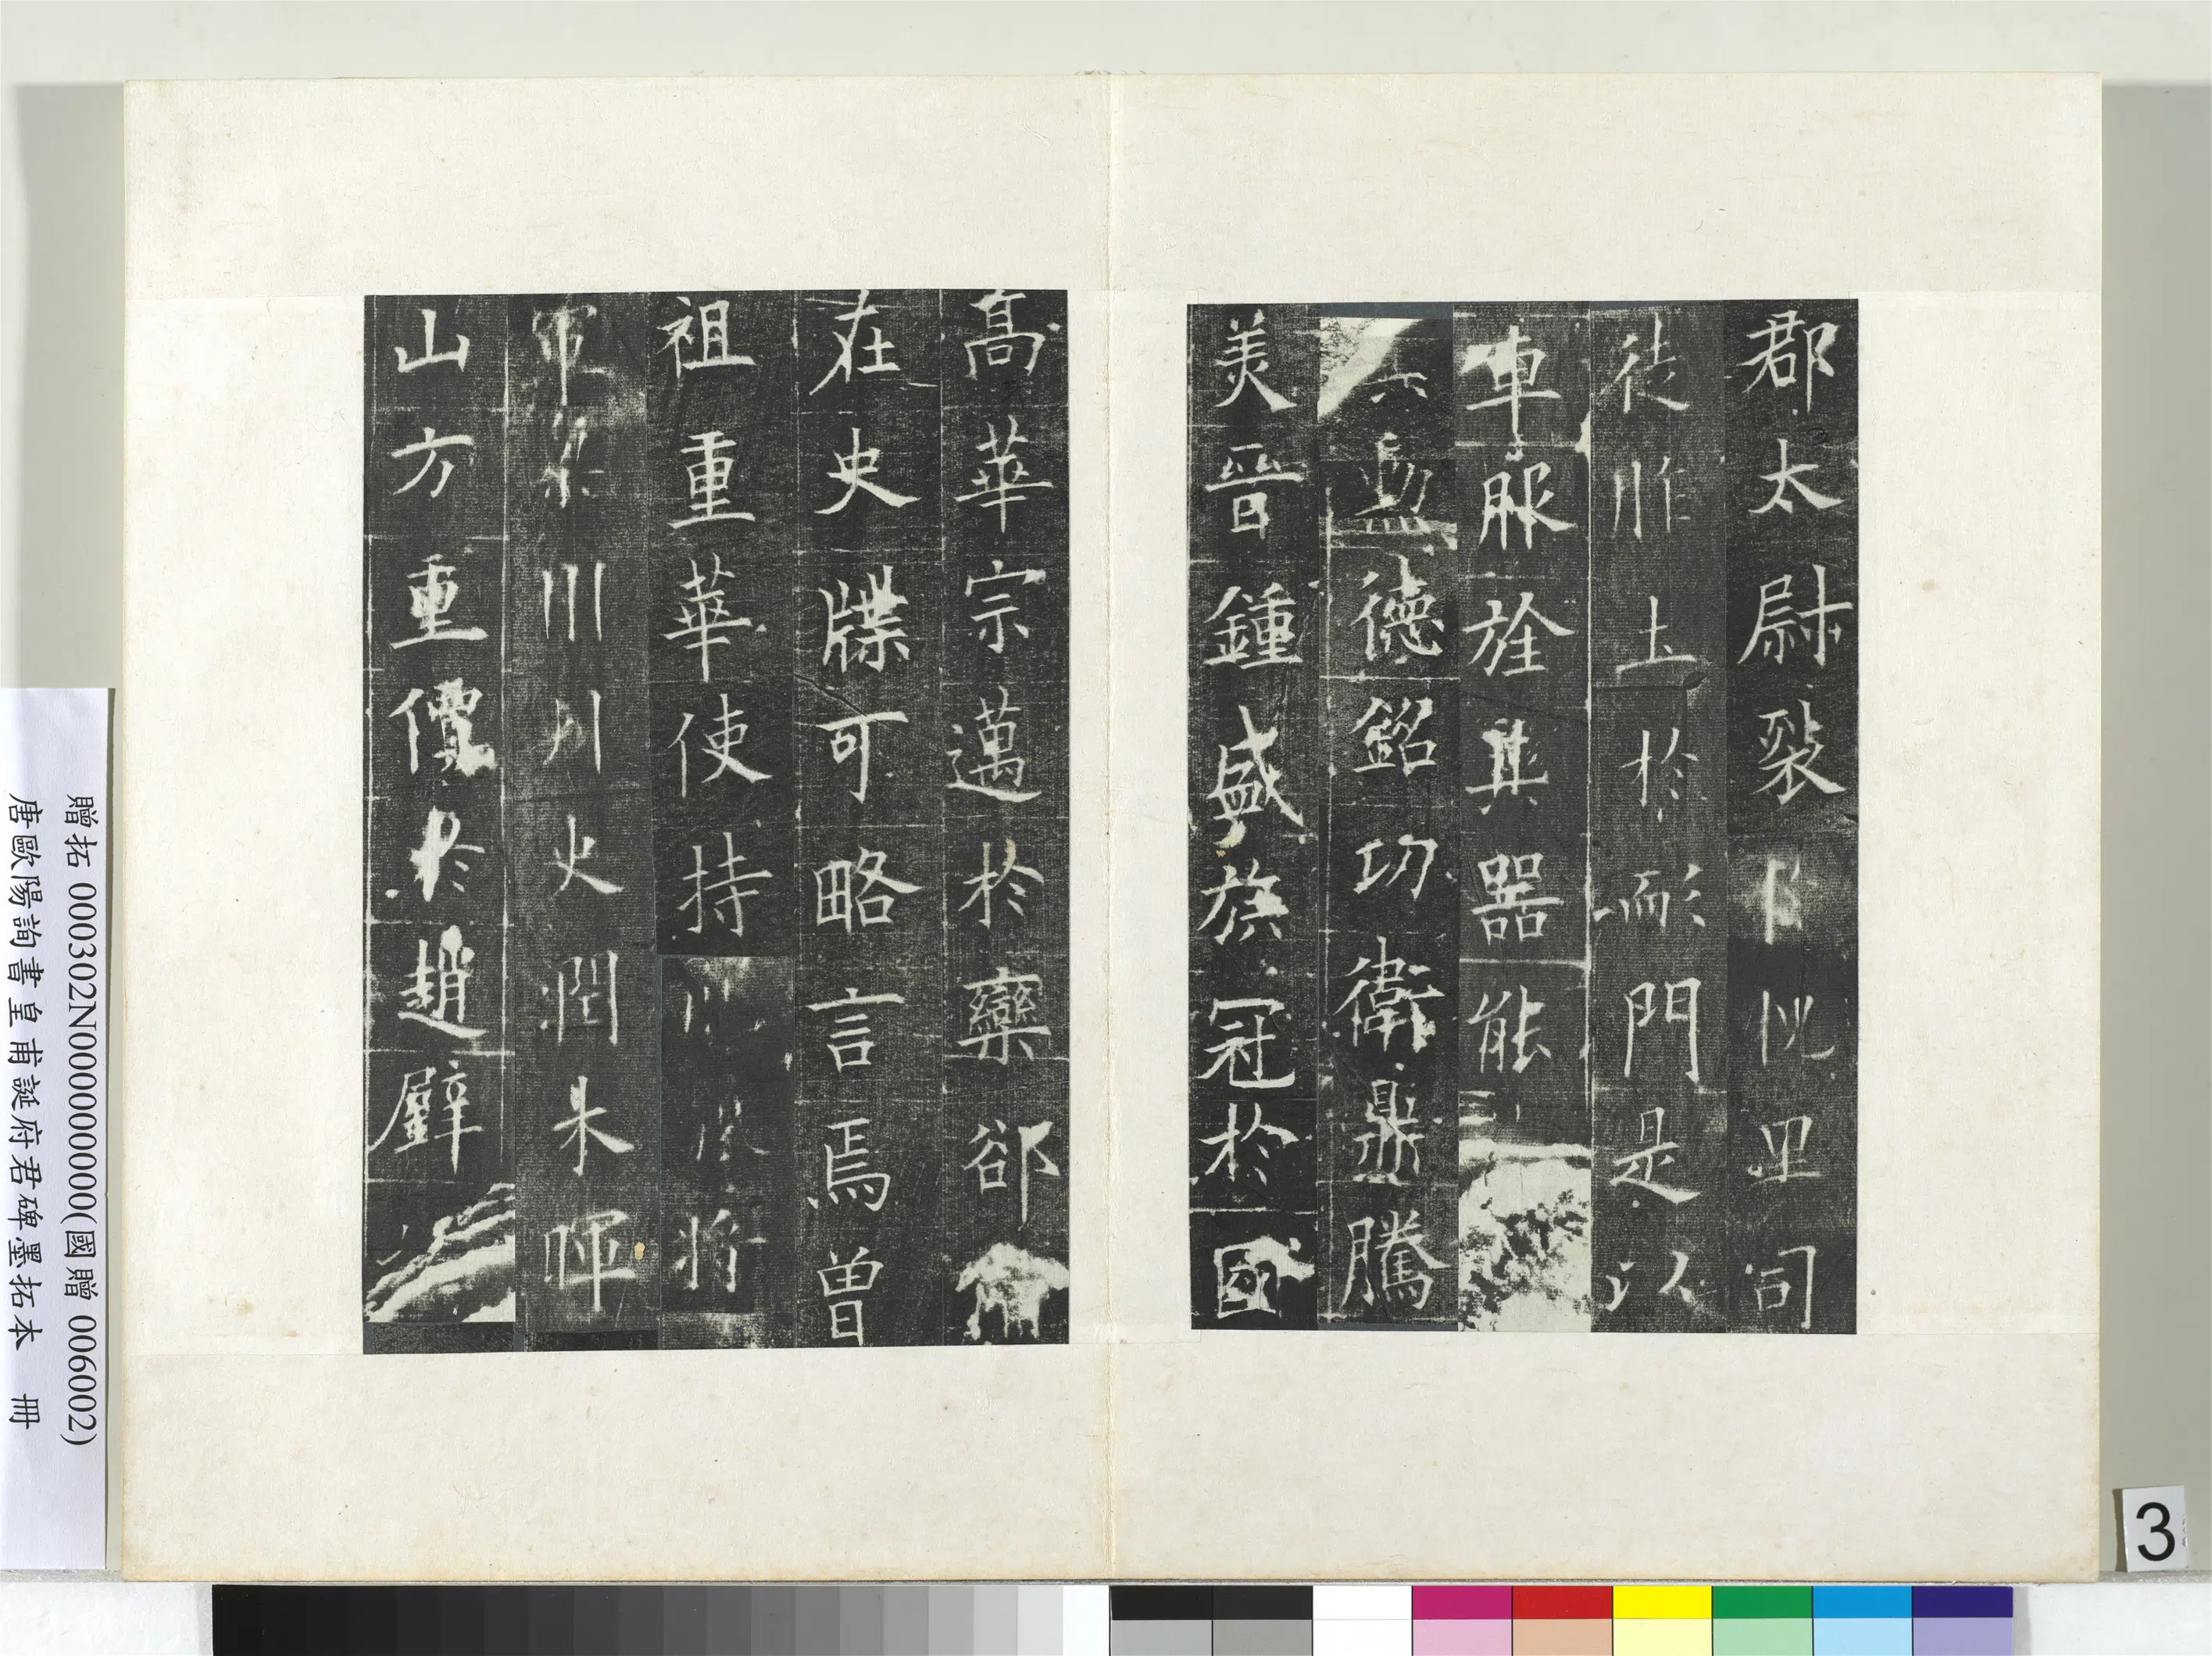 郡太尉裂里司
徒胙土於耏門是以
車服旌其器能
勳德銘功衛鼎騰
美晉鍾盛族冠於國
高華宗邁於欒郤
在史牒可略言焉曾
祖重華使持將
軍梁州刺史潤木暉
山方重價於趙璧
贈拓 000302N000000000(國贈 006002)
唐歐陽詢書皇甫誕府君碑墨拓本 冊
3